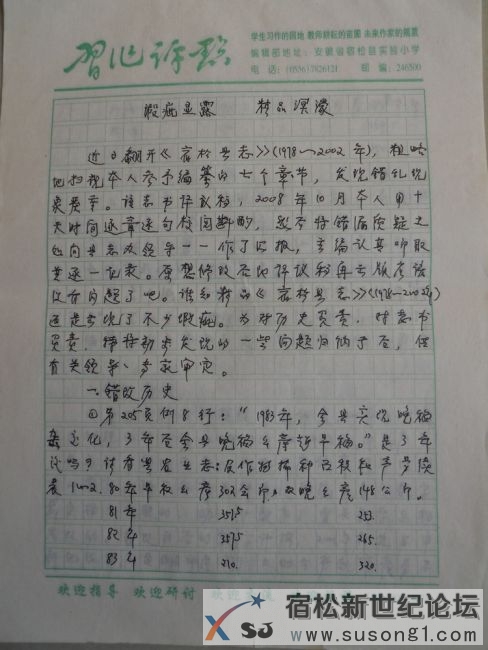 习作评點
学生习作的园地 教师耕耘的苗圃 未来作家的摇篮
编辑部地址:安徽省宿松县实验小学
电 话:(0556)7826121 邮 编:246500
瑕疵显露 精品
近日翻开《宿松县志》(1978~2002年),粗略
地扫视本人参予编纂的七个章节,发现错乱现
象严重。该志书评议稿,2008年10月本人用十
天时间逐章逐句校阅斟酌,
向县志办领导一一作了汇报,主编认真听取
并逐一记录。原想修改后的评议稿再出版应该
没有问题了吧。谁知精品《宿松县志》(1978~2002年)
还是出现了不少瑕疵。为对历史负责,对志书
负责,特将初步发现的一些问题归纳于后,供
有关领导、专家审定。
一.错改历史
①第205页倒8行:"1983年,全县实现晚稻
杂交化,3年后全县晚稻单产超早稻。"是3年
后吗?请看县农业志:农作物播种面积和产量
表1-2.80年早稻单产302公斤,双晚单产148公斤.
81年 351.5 253.
82年 357.5 265.
83年 210. 320.
欢迎指导 欢迎研讨
宿松新世纪论坛
SJ
www.susong1.com